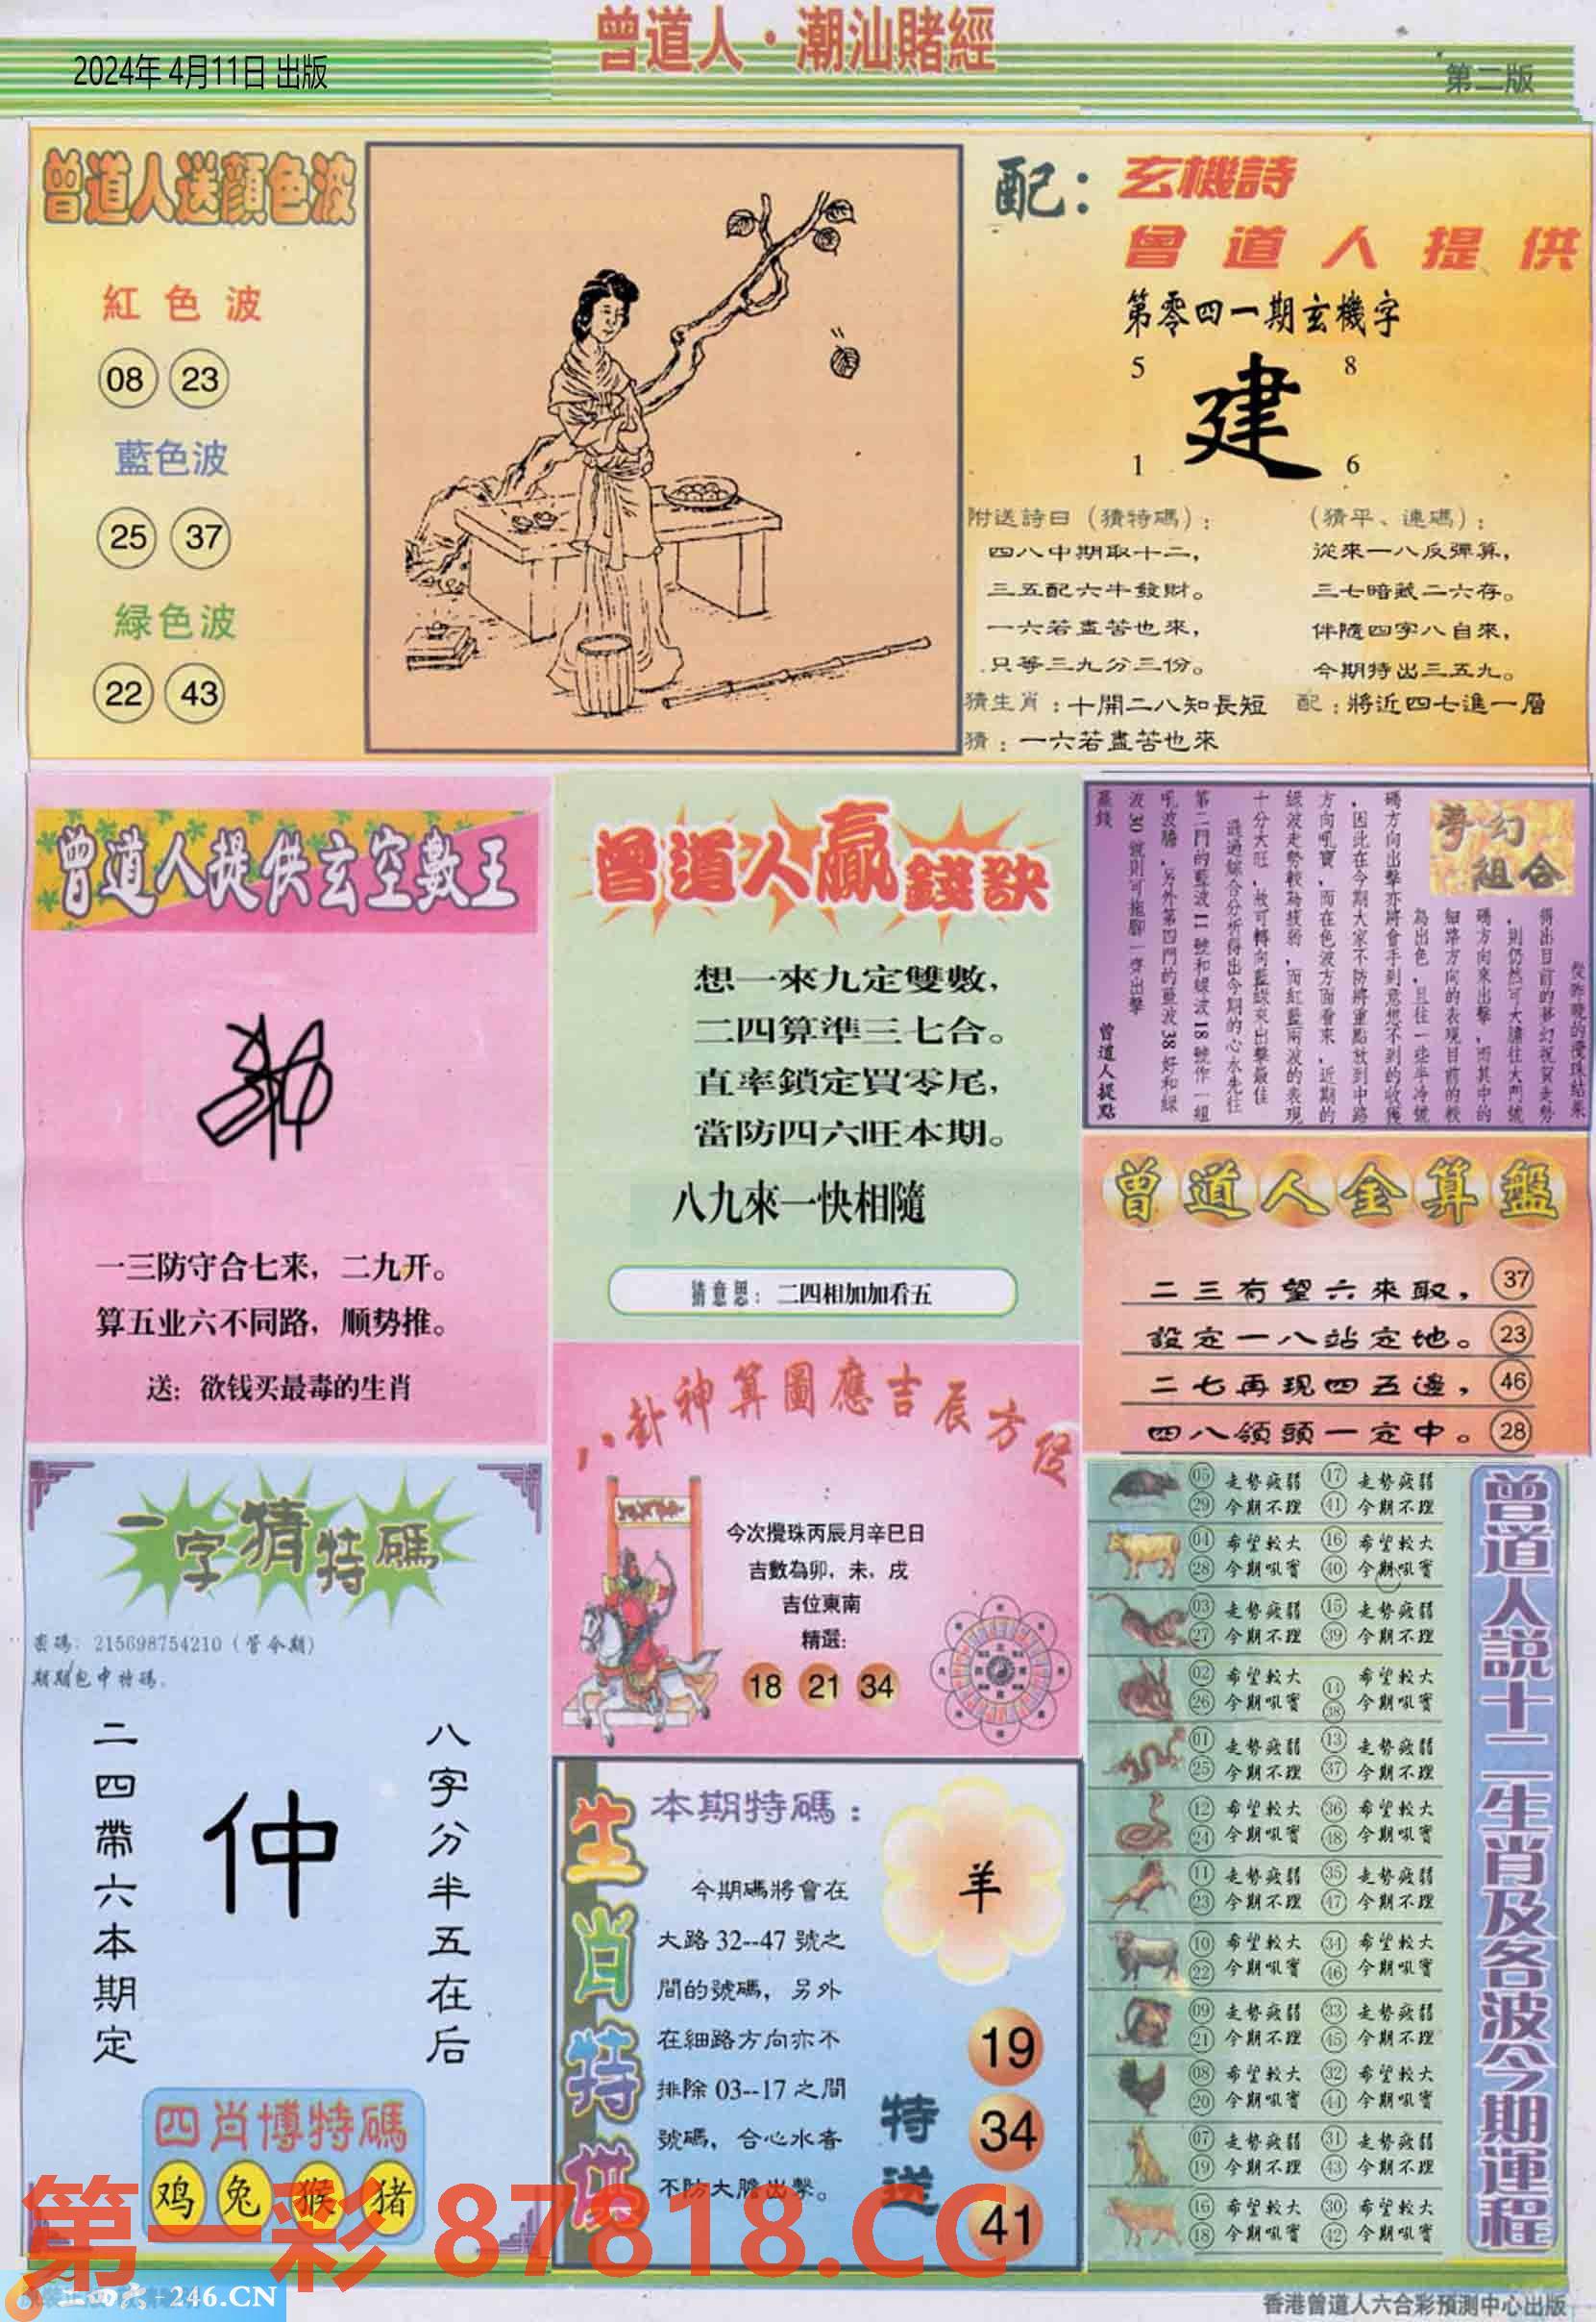 曾道人·潮汕賭經
2024年 4月11日 出版
第二版
曾道人送顏色波
紅色波
08 23
藍色波
25 37
緑色波
22 43
配：玄機詩
曾道人提供
第零四一期玄機字
5 8
建
1 6
附送詩日（猜特碼）：
四八中期取十二，
三五配六牛發財。
一六若盡苦也來，
只等三九分三份。
（猜平、連碼）：
從來一八反彈算，
三七暗藏二六存。
伴隨四字八自來，
今期特出三五九。
猜生肖：十開二八知長短 配：將近四七進一層
猜：一六若盡苦也來
曾道人提供玄空數王
一三防守合七来，二九开。
算五业六不同路，顺势推。
送：欲钱买最毒的生肖
曾道人贏錢訣
想一來九定雙數，
二四算準三七合。
直率鎖定買零尾，
當防四六旺本期。
八九來一快相隨
猜意思：二四相加加看五
夢幻組合
從昨晚的攪珠結果
得出目前的夢幻祝賀走勢
，則仍然可大膽往大門號
碼方向來出擊，而其中的
細路方向的表現目前的較
為出色，且往一些半冷號
碼方向出擊亦將會手到意想不到的收獲
，因此在今期大家不防將重點放到中路
方向吼寶，而在色波方面看來，近期的
綠波走勢較為疲弱，而紅藍兩波的表現
十分大旺，故可轉向藍綠來出擊最佳
通過綜合分析得出今期的心水先往
第二門的藍波11號和綠波18號作一組
吼波膽，另外第四門的藍波38好和綠
波30號則可拖腳一齊出擊
贏錢
曾道人提點
曾道人金算盤
二三有望六來取， 37
設定一八站定地。 23
二七再現四五邊， 46
四八領頭一定中。 28
八卦神算圖應吉辰方位
今次攪珠丙辰月辛巳日
吉數為卯．未．戌
吉位東南
精選:
18 21 34
一字猜特碼
密碼：215698754210（管今期）
期期包中特碼．
八字分半五在后
仲
二四帶六本期定
四肖博特碼
鸡 兔 猴 猪
生肖特供
本期特碼：
羊
今期碼將會在
大路 32--47 號之
間的號碼，另外
在細路方向亦不
排除 03--17 之間
號碼，合心水客
不防大膽出擊。
特送
19
34
41
曾道人說十二生肖及各波今期運程
05 走勢疲弱 17 走勢疲弱
29 今期不理 41 今期不理
04 希望較大 16 希望較大
28 今期吼寶 40 今期吼寶
03 走勢疲弱 15 走勢疲弱
27 今期不理 39 今期不理
02 希望較大 14 希望較大
26 今期吼寶 38 今期吼寶
01 走勢疲弱 13 走勢疲弱
25 今期不理 37 今期不理
12 希望較大 36 希望較大
24 今期吼寶 48 今期吼寶
11 走勢疲弱 35 走勢疲弱
23 今期不理 47 今期不理
10 希望較大 34 希望較大
22 今期吼寶 46 今期吼寶
09 走勢疲弱 33 走勢疲弱
21 今期不理 45 今期不理
08 希望較大 32 希望較大
20 今期吼寶 44 今期吼寶
07 走勢疲弱 31 走勢疲弱
19 今期不理 43 今期不理
16 希望較大 30 希望較大
18 今期吼寶 42 今期吼寶
第一彩 87818.CC
二四六 - 246.CN
香港曾道人六合彩預測中心出版